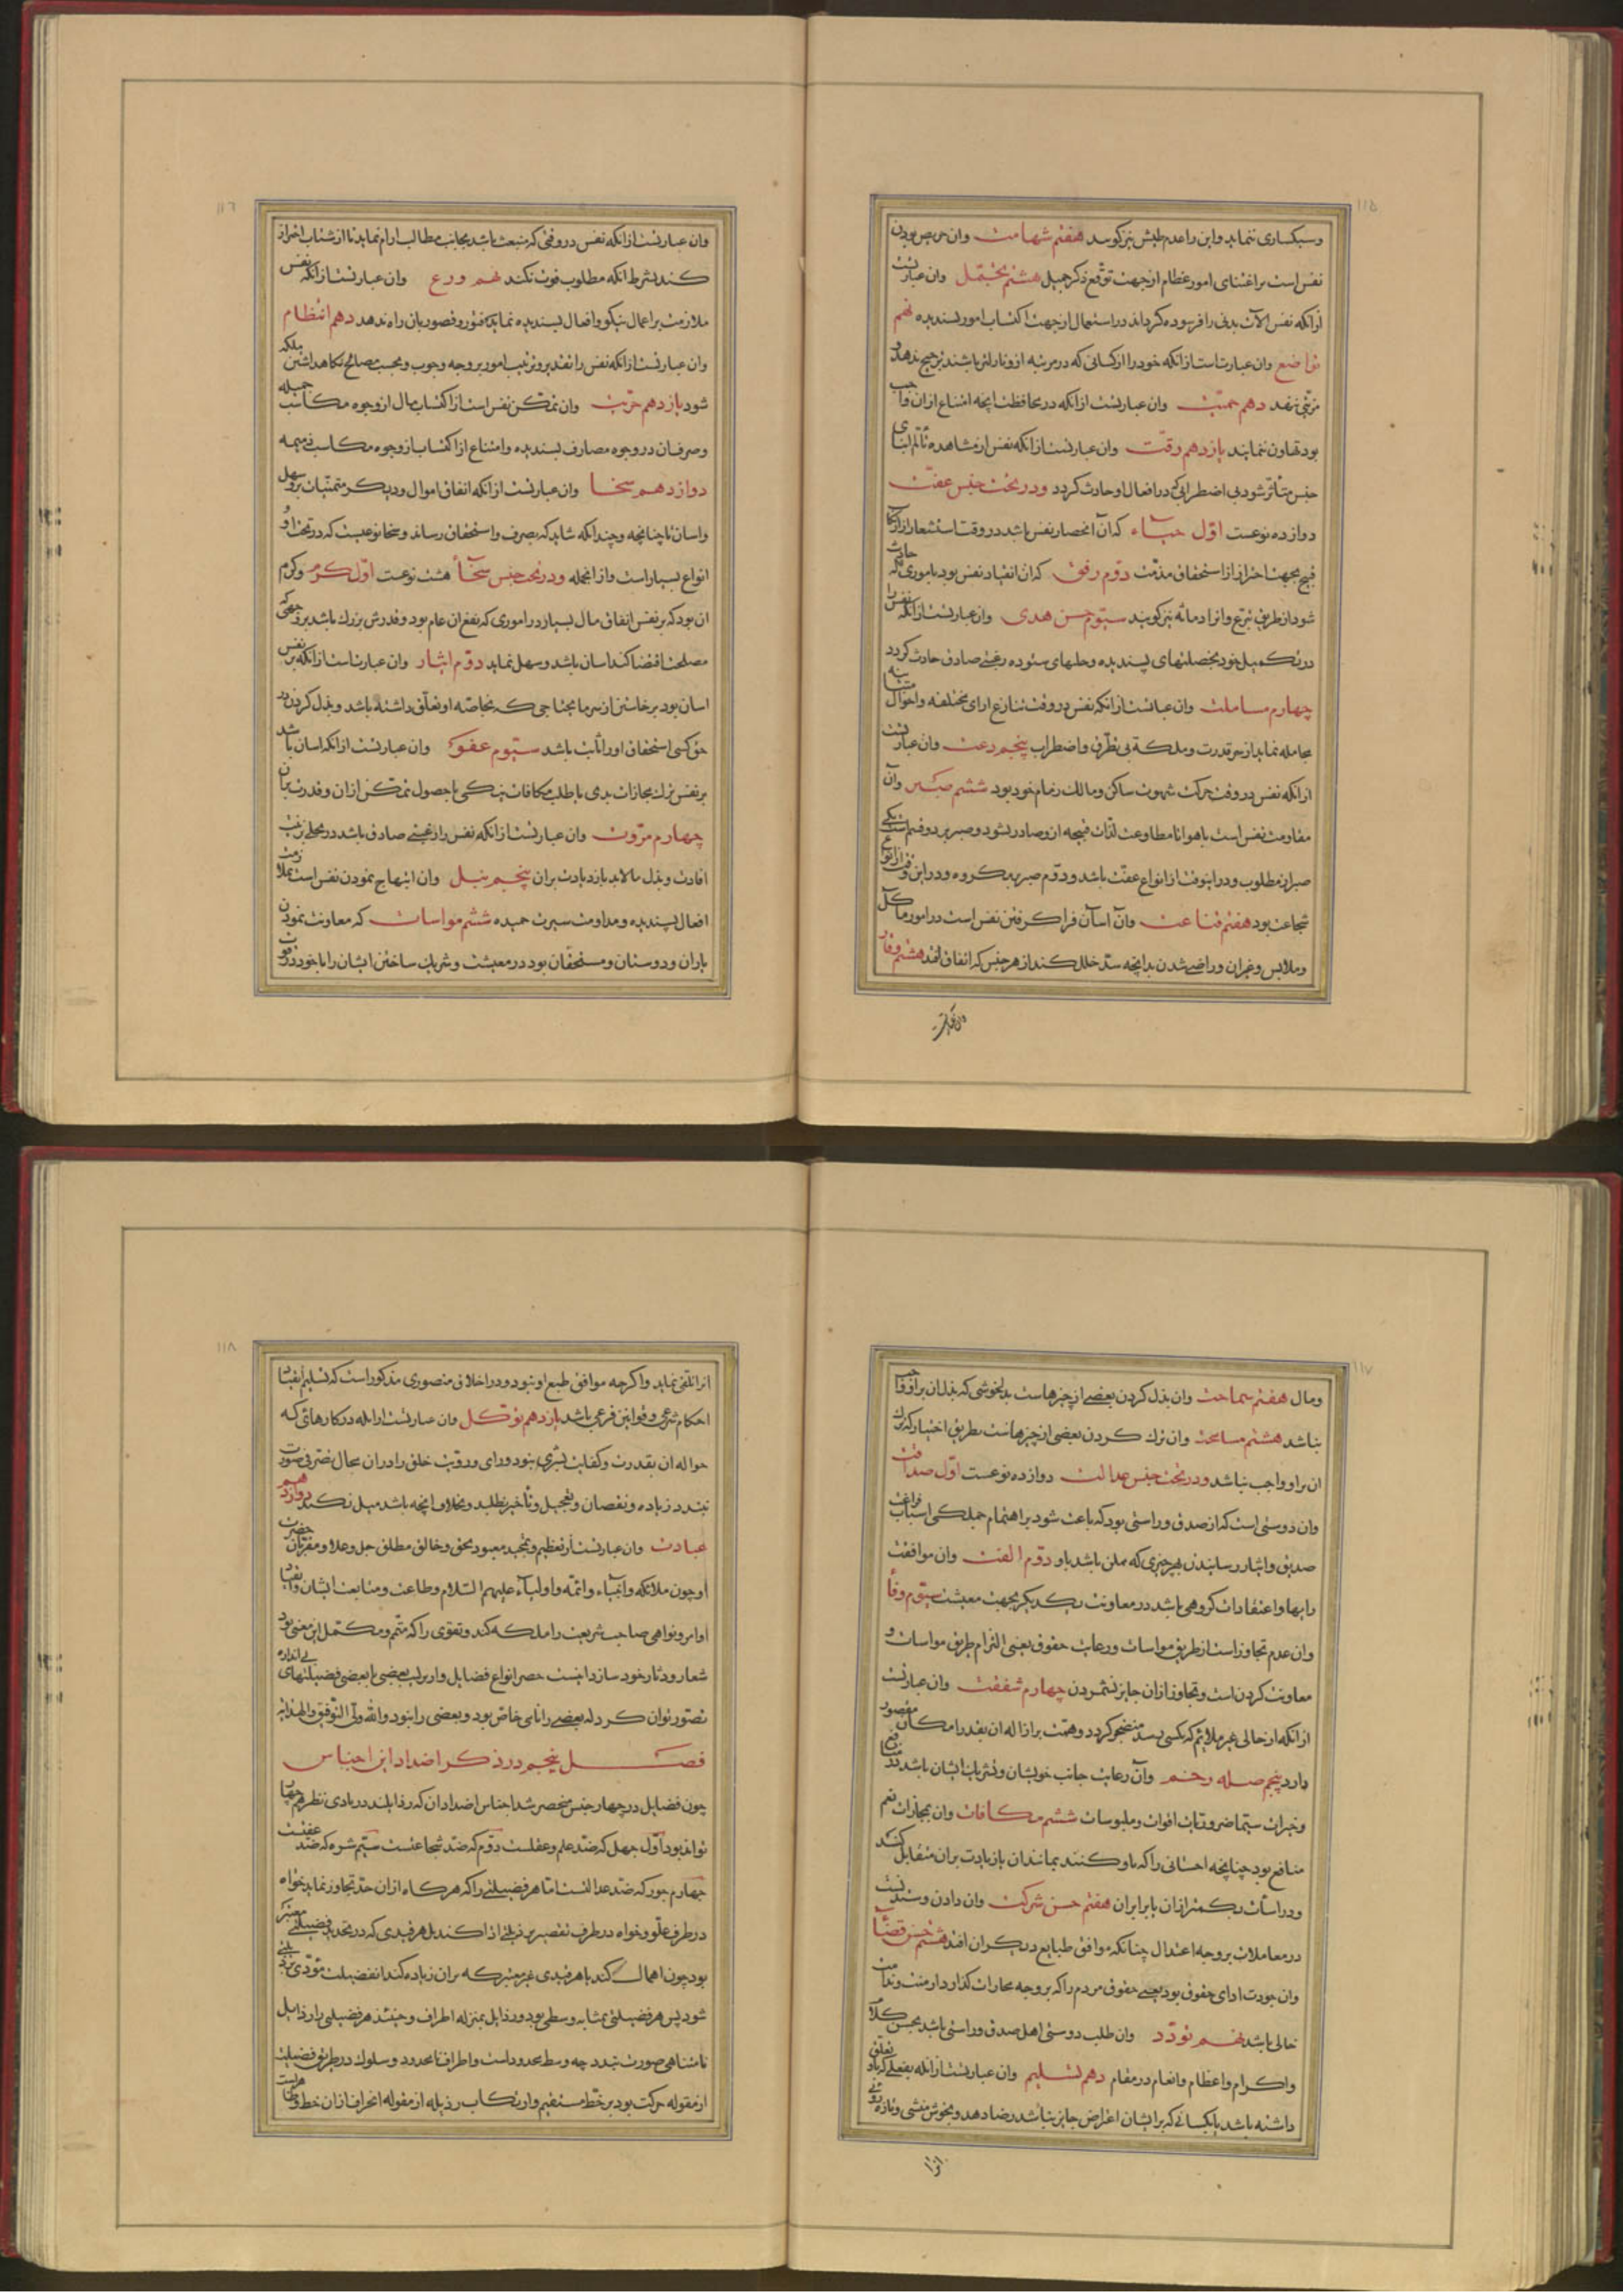 ۱۱۵
وسبکساری ننماید واین را عدم طیش نیز کویند هفتم شهامت وان حریص بودن
نفس است بر اقتنای امور عظام از جهت توقع ذکر جمیل هشتم تحمّل وان عبارتست
از انکه نفس الات بدنی را فرسوده کرداند در استعمال از جهت اکتساب امور پسندیده نهم
تواضع وان عبارتست از انکه خود را از کسانی که در مرتبه ازو نازلتر باشند ترجیح ندهد و
مزیّتی ننهد دهم حمیّت وان عبارتست از انکه در محافظت انچه امتناع از ان واجب
بود تهاون ننماید یازدهم رقّت وان عبارتست از انکه نفس از مشاهده تألّم ابنای
جنس متأثّر شود بی اضطرابی که در افعال او حادث کردد ودر تحت جنس عفّت
دوازده نوعست اوّل حیاء که آن انحصار نفس باشد در وقت استشعار از ارتکاب
قبیح بجهت احتراز از استحقاق مذمّت دوّم رفق که ان انقیاد نفس بود باموری که حادث
شود از طریق تبرّع وانرا دماثه نیز کویند سیّوم حسن هدی وان عبارتست از انکه نفس را
در تکمیل خود بخصلتهای پسندیده وحلیهای ستوده رغبتی صادق حادث کردد
چهارم مسالمت وان عبارتست از انکه نفس در وقت تنازع ارای مختلفه واحوال متباینه
مجامله نماید از سر قدرت وملکة بی تطرّق واضطراب پنجم دعت وان عبارتست
از انکه نفس در وقت حرکت شهوت ساکن ومالک زمام خود بود ششم صبر وآن
مقاومت نفس است با هوا تا مطاوعت لذّات قبیحه ازو صادر نشود وصبر بر دو قسم است یکی
صبر از مطلوب ودر اینوقت از انواع عفّت باشد ودوّم صبر بر مکروه ودر این وقت از انواع
شجاعت بود هفتم قناعت وآن آسان فرا کرفتن نفس است در امور مآکل
وملابس وغیران وراضی شدن بدانچه سدّ خلل کند از هر جنس که اتفاق افتد هشتم وقار
وان عبارتست
۱۱٦
وان عبارتست از انکه نفس در وقتی که منبعث باشد بجانب مطالب ارام نماید تا از شتاب احتراز
کند بشرط انکه مطلوب فوت نکند نهم ورع وان عبارتست از انکه نفس
ملازمت بر اعمال نیکو وافعال پسندیده نماید که فتور وقصور بان راه ندهد دهم انتظام
وان عبارتست از انکه نفس را تقدیر وترتیب امور بر وجه وجوب وبحسب مصالح نکاهداشتن ملکه
شود یازدهم حرّیت وان تمکّن نفس است از اکتساب مال از وجوه مکاسب جمیله
وصرف ان در وجوه مصارف پسندیده وامتناع از اکتساب از وجوه مکاسب ذمیمه
دوازدهم سخا وان عبارتست از انکه انفاق اموال ودیکر مقتنیات برو سهل
واسان تا چنانچه وچندانکه شاید که بمصرف واستحقاق رساند وسخا نوعیست که در تحت او
انواع بسیار است واز انجمله ودر تحت جنس سخآء هشت نوعست اوّل کرم وکرم
ان بود که بر نفس انفاق مال بسیار در اموری که نفع ان عام بود وقدرش بزرك باشد بر وجهی که
مصلحت اقتضا کند اسان باشد وسهل نماید دوّم ایثار وان عبارتست از انکه بر نفس
اسان بود برخاستن از سر ما یحتاجی که بخاصّه او تعلّق داشته باشد وبذل کردن در
حق کسی استحقاق او را ثابت باشد سیّوم عفو وان عبارتست از انکه اسان باشد
بر نفس ترك مجازات بدی یا طلب مکافات نیکی با حصول تمکّن از ان وقدرت بر ان
چهارم مروّت وان عبارتست از انکه نفس را رغبتی صادق باشد در تحلی بزینت
افادت وبذل ما لابد یا زیادت بر ان پنجم نیل وان ابتهاج نمودن نفس است بملازمت
افعال پسندیده ومداومت سیرت حمیده ششم مواسات که معاونت نمودن
یاران ودوستان ومستحقّان بود در معیشت وشریک ساختن ایشان را با خود در قوت
۱۱۷
ومال هفتم سماحت وان بذل کردن بعضی از چیزهاست بدلخوشی که بذل ان بر او واجب
نباشد هشتم مسامحت وان ترك کردن بعضی از چیزهاست بطریق اختیار که ترك
ان بر او واجب نباشد ودر تحت جنس عدالت دوازده نوعست اوّل صداقت
وان دوستی است که از صدق وراستی بود که باعث شود بر اهتمام جملکی اسباب فراغت
صدیق وایثار رسانیدن هر چیزی که ممکن باشد باو دوّم الفت وان موافقت
رایها واعتقادات کروهی باشد در معاونت یکدیکر بجهت معیشت سیّوم وفا
وان عدم تجاوز است از طریق مواسات ورعایت حقوق یعنی التزام طریق مواسات و
معاونت کردن است وتجاوز از ان جایز نشمردن چهارم شفقت وان عبارتست
از انکه از حالی غیر ملایم که بکسی رسد منضجر کردد وهمّت بر ازاله ان بقدر امکان مقصور
دارد پنجم صله رحم وآن رعایت جانب خویشان ونزدیکان ایشان باشد در منافع
وخیرات سیّما ضروریات اقوات وملبوسات ششم مکافات وان مجازات نعم
منافع بود چنانچه احسانی را که باو کنند بمانند ان یا زیادت بر ان متقابل کند
ودر اسائت بکمتر از ان یا برابر ان هفتم حسن شرکت وان دادن وستدنست
در معاملات بر وجه اعتدال چنانکه موافق طبایع دیکران افتد هشتم حسن قضآء
وان جودت ادای حقوق بود یعنی حقوق مردم را که بر وجه مجازات کذارد از منّت وندامت
خالی باشد نهم تودّد وان طلب دوستی اهل صدق وراستی باشد بحسن کلام
واکرام واعظام وانعام در مقام دهم تسلیم وان عبارتست از انکه بفعلی که باو تعلق
داشته باشد یا بکسانی که بر ایشان اعتراض جایز نباشد رضا دهد وبخوش منشی وتازه روئی
انرا
۱۱۸
انرا تلقی نماید واکرچه موافق طبع او نبود ودر اخلاق منصوری مذکور است که تسلیم انقیاد
احکام شرعی وقوانین فرعی باشد یازدهم توکّل وان عبارتست از انکه در کارهائی که
حواله ان بقدرت وکفایت بشری نبود ورای ورویّت خلق را در ان مجال تصرّفی صورت
نبندد زیاده ونقصان وتعجیل وتأخیر نطلبد وبخلاف انچه باشد میل نکند دوازدهم
عبادت وان عبارتست از تعظیم وتمجید معبود بحق وخالق مطلق جل وعلا ومقرّبان حضرت
او چون ملائکه وانبیاء وائمّه واولیآء علیهم السّلام وطاعت ومتابعت ایشان وانقیاد
اوامر ونواهی صاحب شریعت را ملکه کند وتقوی را که متمّم ومکمّل این معنی بود
شعار ودثار خود سازد اینست حصر انواع فضایل واز ترکیب بعضی با بعضی فضیلتهای بی اندازه
تصوّر توان کرد که بعضی را نامی خاص بود وبعضی را نبود والله ولیّ التوفیق والهدایه
فصل پنجم در ذکر اضداد این اجناس
چون فضایل در چهار جنس منحصر شد اجناس اضداد ان که رذایلند در بادی نظر هم چهار
تواند بود اوّل جهل که ضد علم وعقلست دوّم که ضدّ شجاعتست سیّم شره که ضد عفّتست
چهارم جور که ضدّ عدالتست امّا هر فضیلتی را که هرکاه از ان حدّ تجاوز نماید خواه
در طرف علّو وخواه در طرف تقصیر بر ذیلتی ادا کند بل هر قیدی که در تحدید فضیلتی معتبر
بود چون اهمال کند یا هر قیدی غیر معتبر که بر ان زیاده کند انفضیلت مؤدّی برذیلتی
شود پس هر فضیلتی بمثابه وسطی بود ورذایل بمنزله اطراف وحینئذ هر فضیلتی را رذایل
نامتناهی صورت بندد چه وسط محدود است واطراف نامحدود وسلوك در طریق فضیلت
از مقوله حرکت بود بر خطّ مستقیم وارتکاب رذیله از مقوله انحراف از ان خط